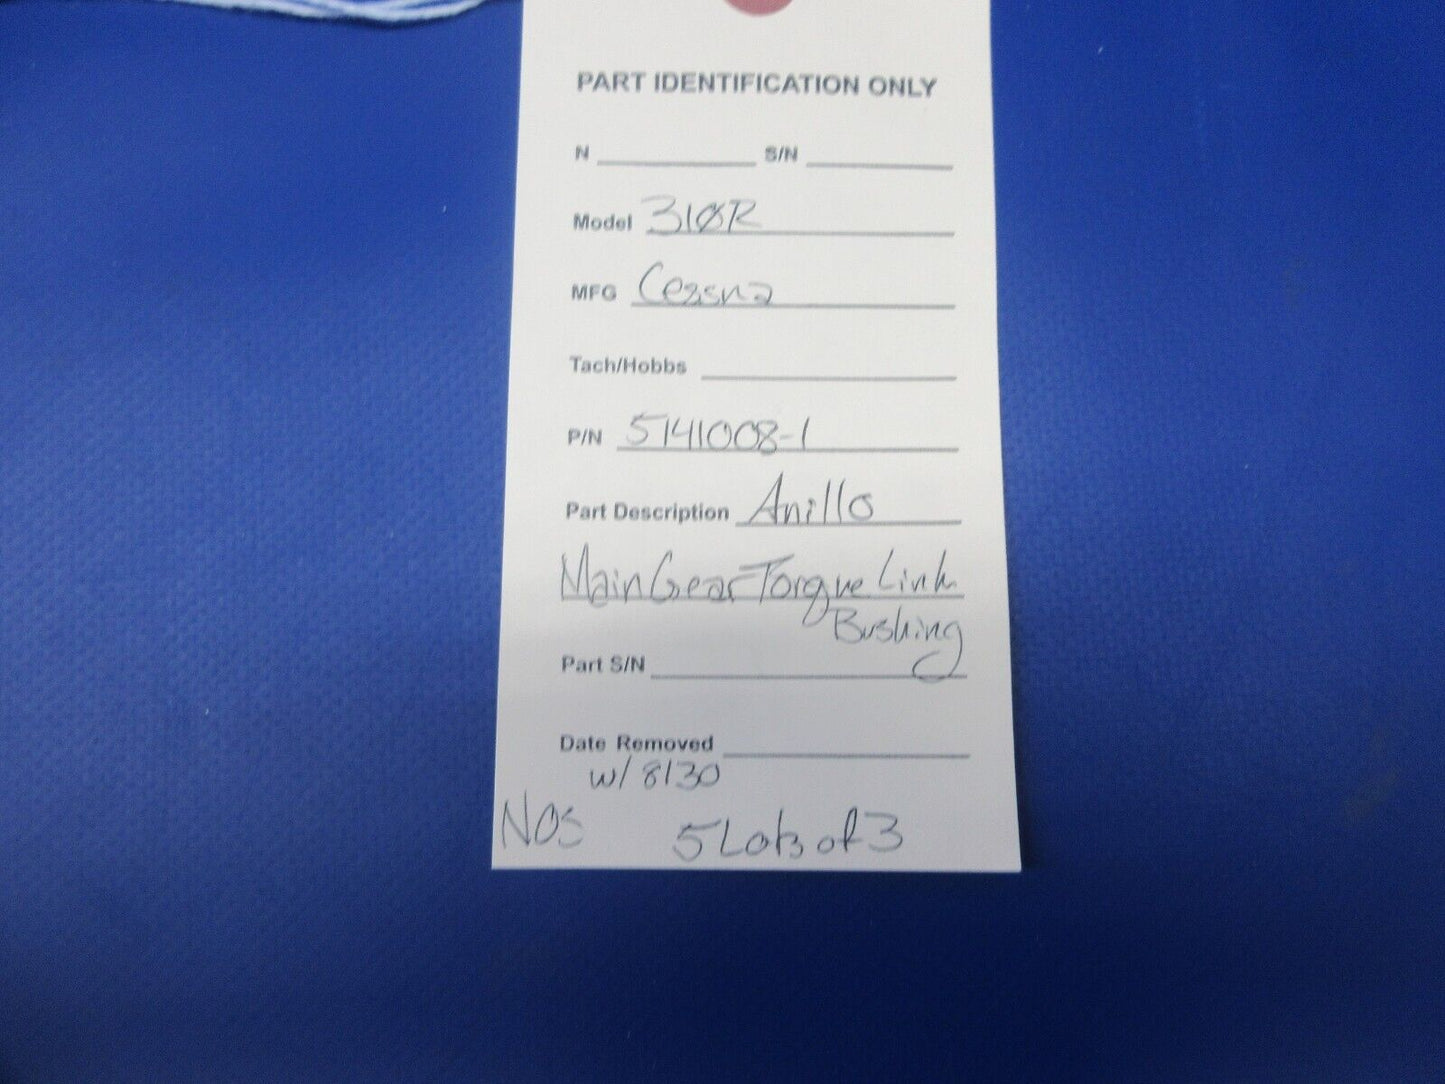 PART IDENTIFICATION ONLY
N S/N
Model 310R
MFG Cessna
Tach/Hobbs
P/N 5141008-1
Part Description Anillo
Main Gear Torque Link
Bushing
Part S/N
Date Removed
w/ 8130
NOS 5 Lots of 3